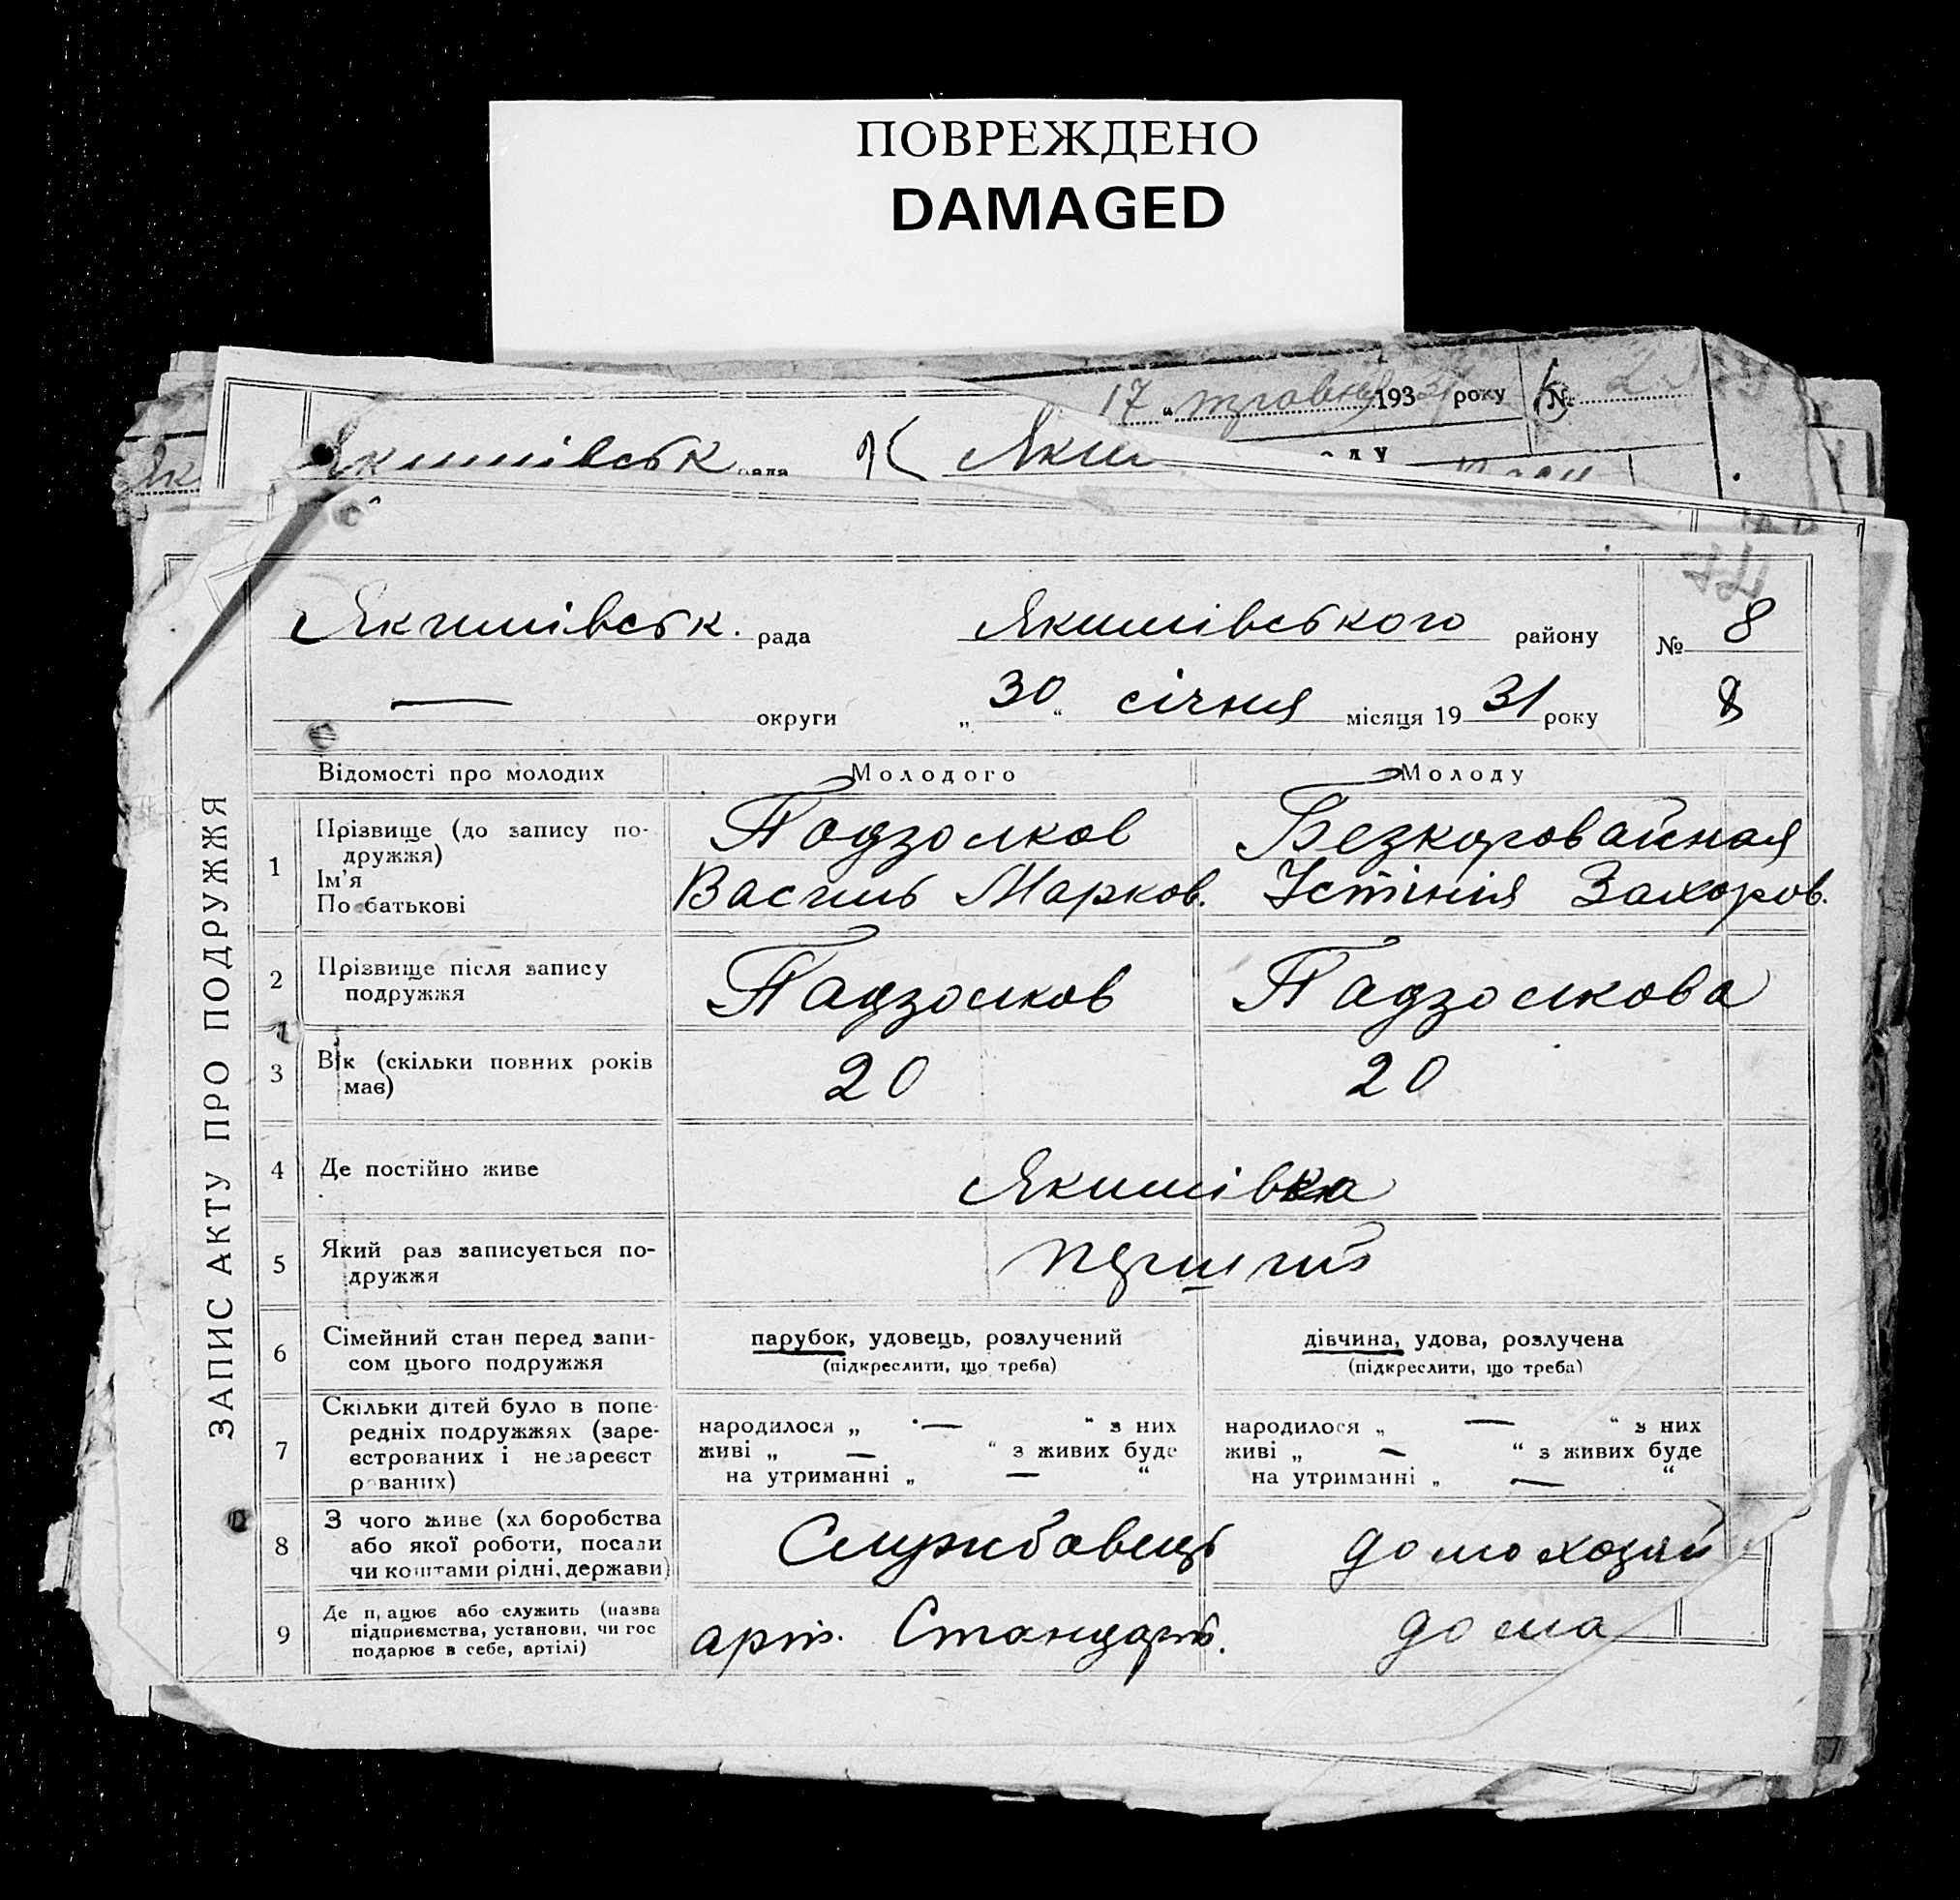 ПОВРЕЖДЕНО
DAMAGED
17 „ травня 193 року №
Якимівськ рада Яки
Якимівськ. рада Якимівського району № 8
— округи „ 30 “ січня місяця 19 31 року 8
ЗАПИС АКТУ ПРО ПОДРУЖЖЯ
Відомості про молодих Молодого Молоду
1 Прізвище (до запису по-
дружжя)
Ім'я
По батькові
Подзолков
Василь Марков.
Безкоровайная
Устінія Захаров.
2 Прізвище після запису
подружжя
Падзолков Падзолкова
3 Вік (скільки повних років
має)
20 20
4 Де постійно живе Якимівка
5 Який раз записується по-
дружжя
перший
6 Сімейний стан перед запи-
сом цього подружжя
парубок, удовець, розлучений
(підкреслити, що треба)
дівчина, удова, розлучена
(підкреслити, що треба)
7 Скільки дітей було в попе-
редніх подружжях (заре-
єстрованих і незареєст
рованих)
народилося „ — “ з них
живі „ — “ з живих буде
на утриманні „ — “
народилося „ — “ з них
живі „ — “ з живих буде
на утриманні „ — “
8 З чого живе (хл боробства
або якої роботи, посади
чи коштами рідні, держави)
Службовець домохозяй
9 Де працює або служить (назва
підприємства, установи, чи гос
подарює в себе, артілі)
арт. Стандарт. дома